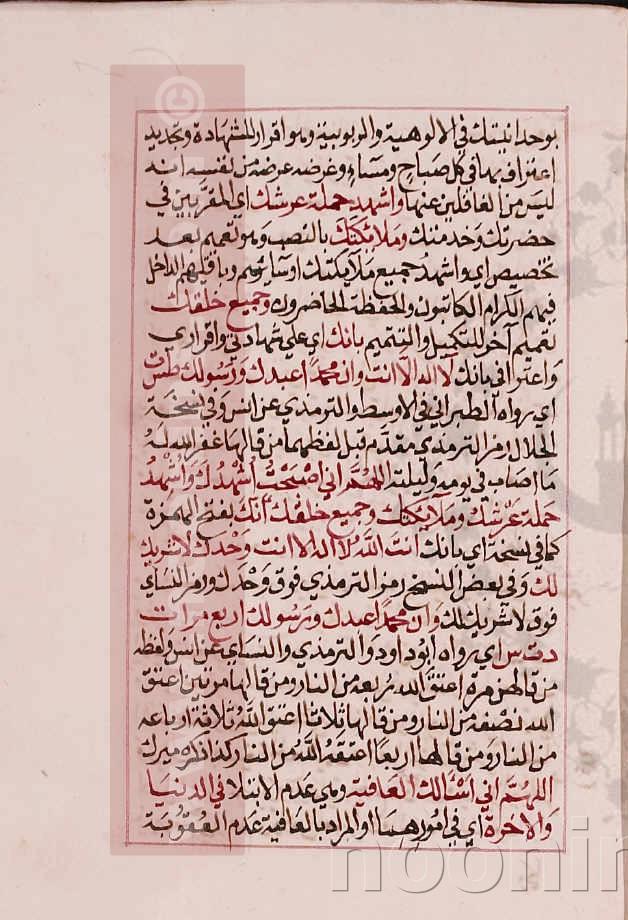 بوحدانيتك في الالوهية والربوبية وهو اقرار للشهادة وتجديد
اعتراف بها في كل صباح ومساء وعرضه عرضه من نفسه انه
ليس من الغافلين عنها واشهد حملة عرشك اي المقربين في
حضرتك وخدمتك وملائكتك بالنصب وهو تعميم بعد
تخصيص اي واشهد جميع ملايكتك اوسايرهم وباقيهم الداخل
فيهم الكرام الكاتبون والحفظة الحاضرون وجميع خلقك
تعميم آخر للتكميل والتتميم بانك اي على شهادتي واقراري
واعترافي بانك لا اله الا انت وان محمدا عبدك ورسولك طس ت
اي رواه الطبراني في الاوسط والترمذي عن انس وفي نسخة
الجلال رمز الترمذي مقدم قبل لفظهما من قالها غفر الله له
ما اصاب في يومه وليلته اللهم اني اصبحت اشهدك واشهد
حملة عرشك وملائكتك وجميع خلقك انك بفتح الهمزة
كما في نسخة اي بانك انت الله لا اله الا انت وحدك لا شريك
لك وفي بعض النسخ رمز الترمذي فوق وحدك ورمز النساي
فوق لا شريك لك وان محمدا عبدك ورسولك اربع مرات
د ت س اي رواه ابو داود والترمذي والنساي عن انس ولفظه
من قالهن مرة اعتق الله ربعه من النار ومن قالها مرتين اعتق
الله نصفه من النار ومن قالها ثلاثا اعتق الله ثلاثة ارباعه
من النار ومن قالها اربعا اعتقه الله من النار كذا ذكره ميرك
اللهم اني اسئالك العافية وهي عدم الابتلا في الدنيا
والاخرة اي في امورهما او المراد بالعافية عدم العقوبة
noonin